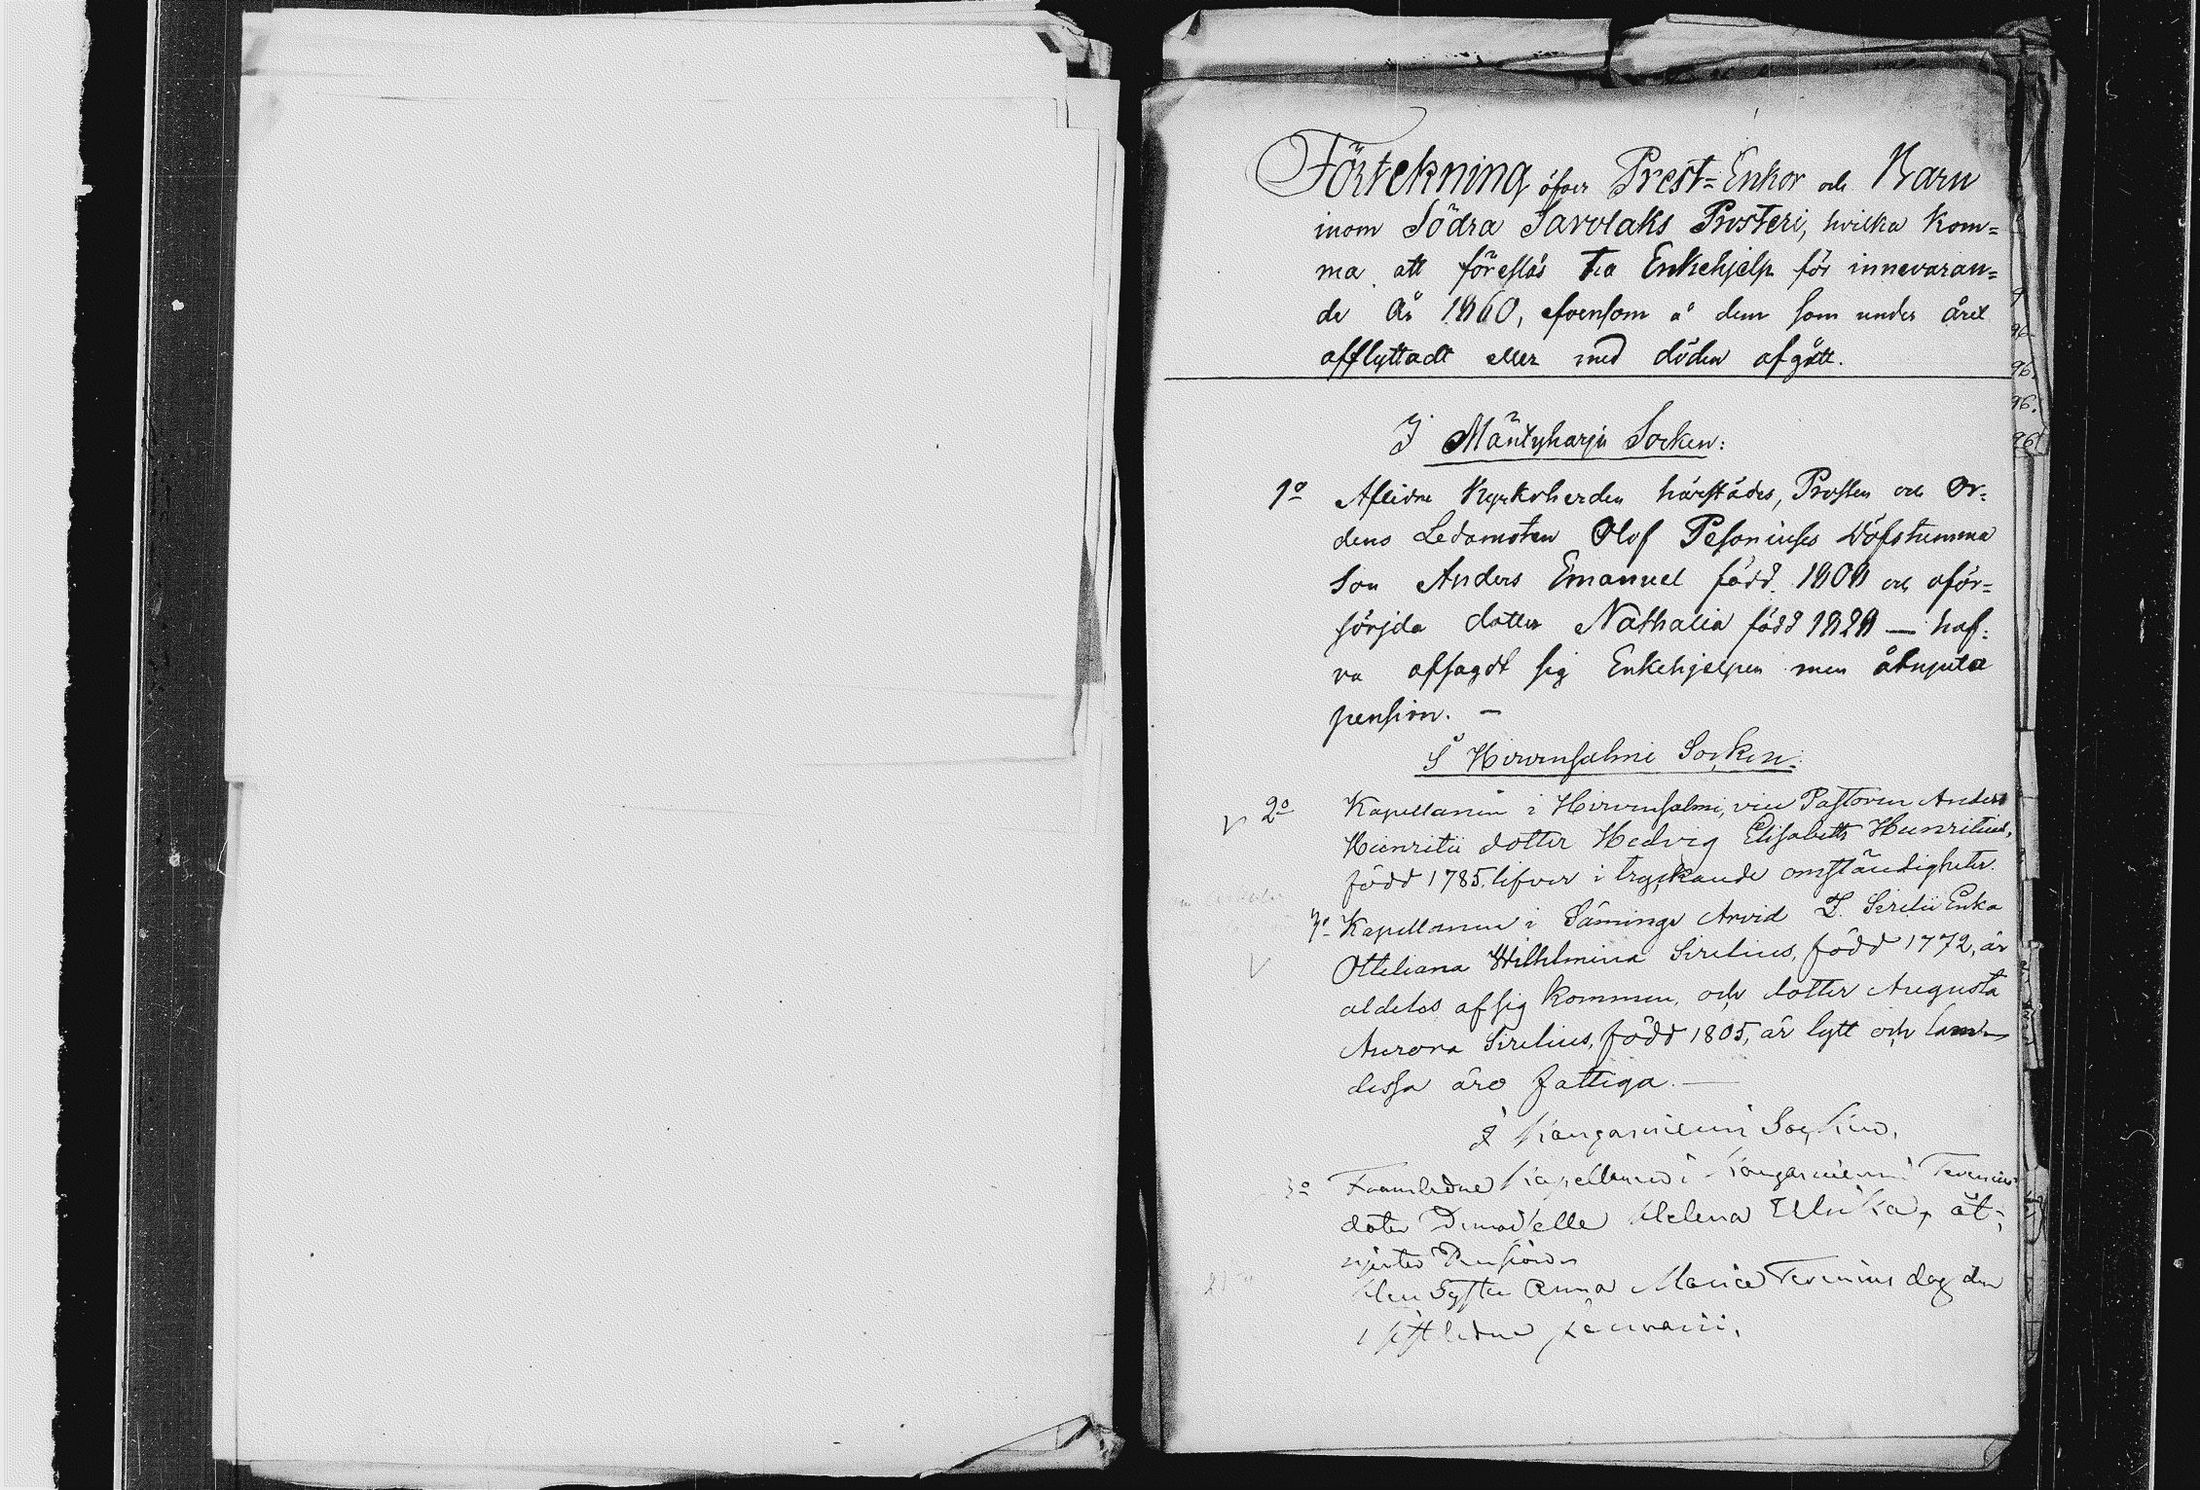 Förtekning öfver Prest=Enkor och Barn
inom Södra Savolaks Prosteri, hvilka kom=
ma att föreslås till Enkehjelp för innevaran=
de år 1860, äfvensom å dem som under året
afflyttadt eller med döden afgått.
I Mäntyharju Socken:
1º Aflidne Kyrkoherden härstädes, Prosten och Or=
dens Ledamoten Olof Pesoniuses döfstumma
Son Anders Emanuel född 1808 och oför=
sörjda dotter Nathalia född 1828 — haf=
va afsagdt sig Enkehjelpen men åtnjuta
pension. —
I Hirvensalmi Socken:
V 2º Kapellanen i Hirvensalmi, vice Pastoren Anders
Heinritii dotter Hedvig Elisabeth Heinritius,
född 1785, lifver i tryckande omständigheter.
3º Kapellanen i Säminge Arvid Z. Sirelii Enka
V Otteliana Wilhelmina Sirelius, född 1772, är
aldeles afsigkommen, och dotter Augusta
Aurora Sirelius, född 1805, är lytt och lam
dessa äro fattiga. —
I Kangasniemi Socken,
3º Framledne Kapellanen i Kangasniemi
doter Demoiselle Helena Ulrika, åt=
njuter Pension
Hen Syster Anna Maria dog den
1 sistledne januarii.
96.
96.
96.
96.